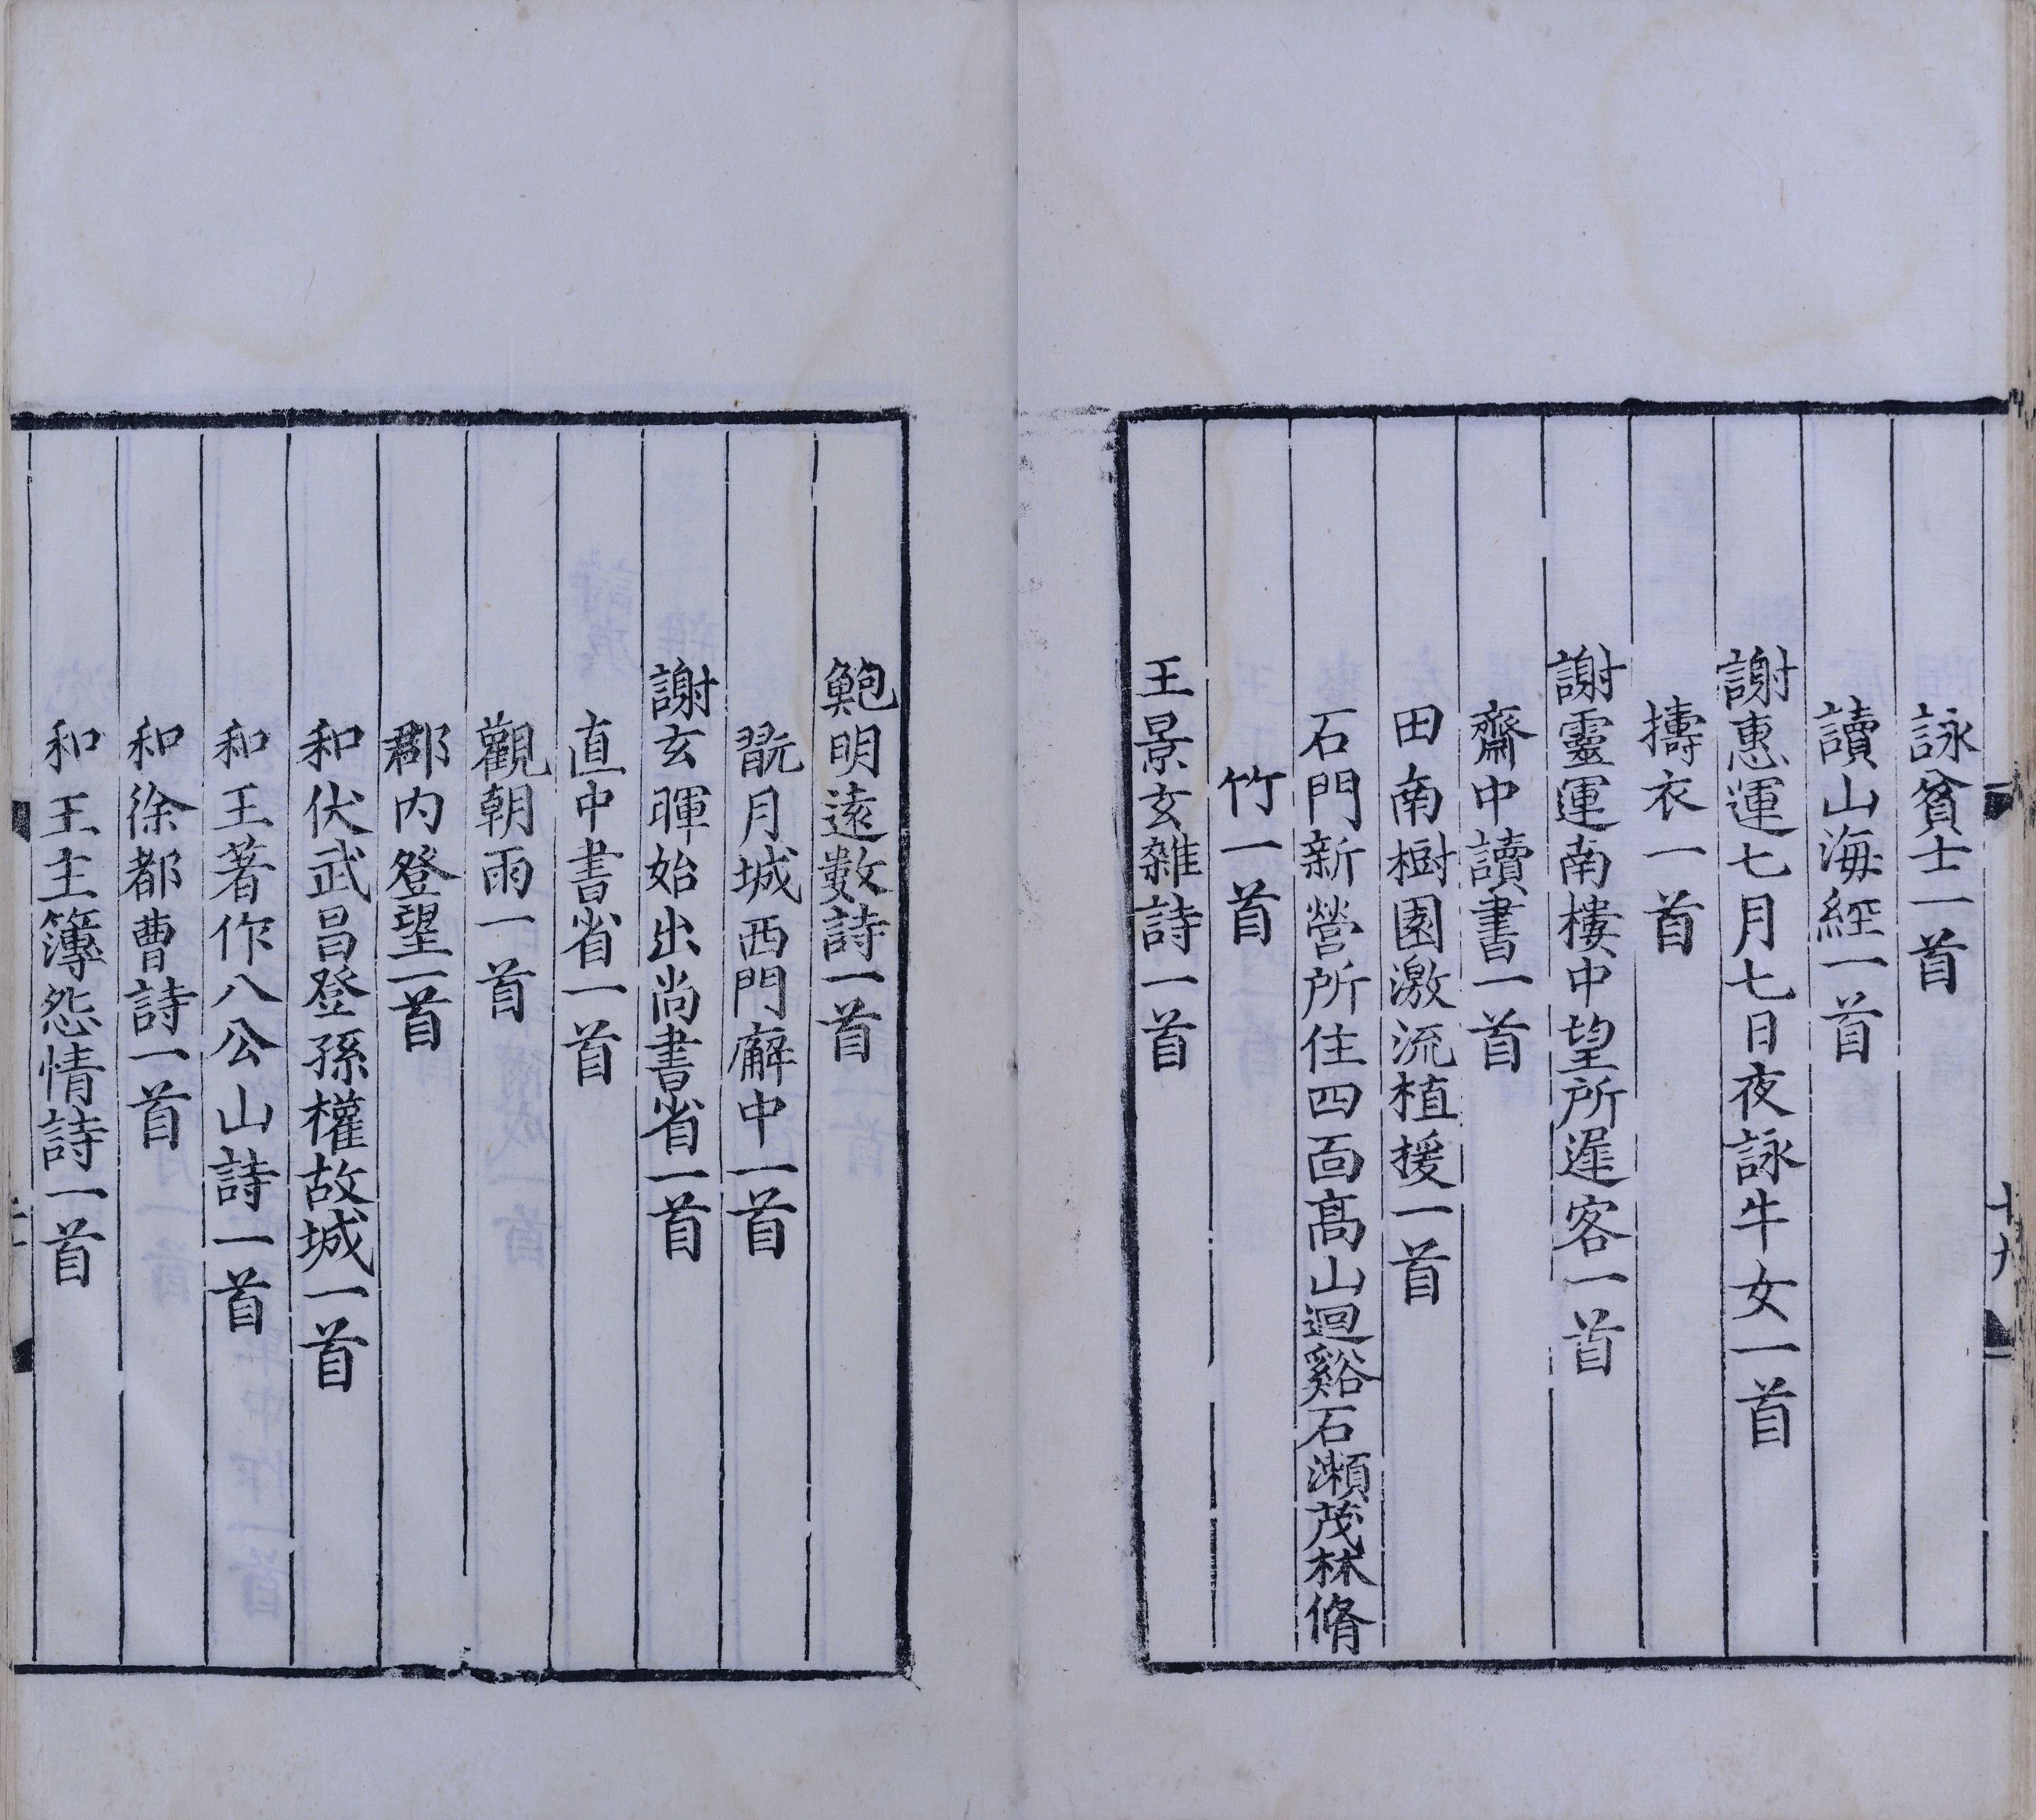 詠貧士一首
讀山海經一首
謝惠運七月七日夜詠牛女一首
擣衣一首
謝靈運南樓中望所遲客一首
齋中讀書一首
田南樹園激流植援一首
石門新營所住四面髙山迴谿石瀨茂林脩
竹一首
王景玄雜詩一首
鮑明逺數詩一首
翫月城西門廨中一首
謝玄暉始出尚書省一首
直中書省一首
觀朝雨一首
郡内登望一首
和伏武昌登孫權故城一首
和王著作八公山詩一首
和徐都曹詩一首
和王主簿怨情詩一首